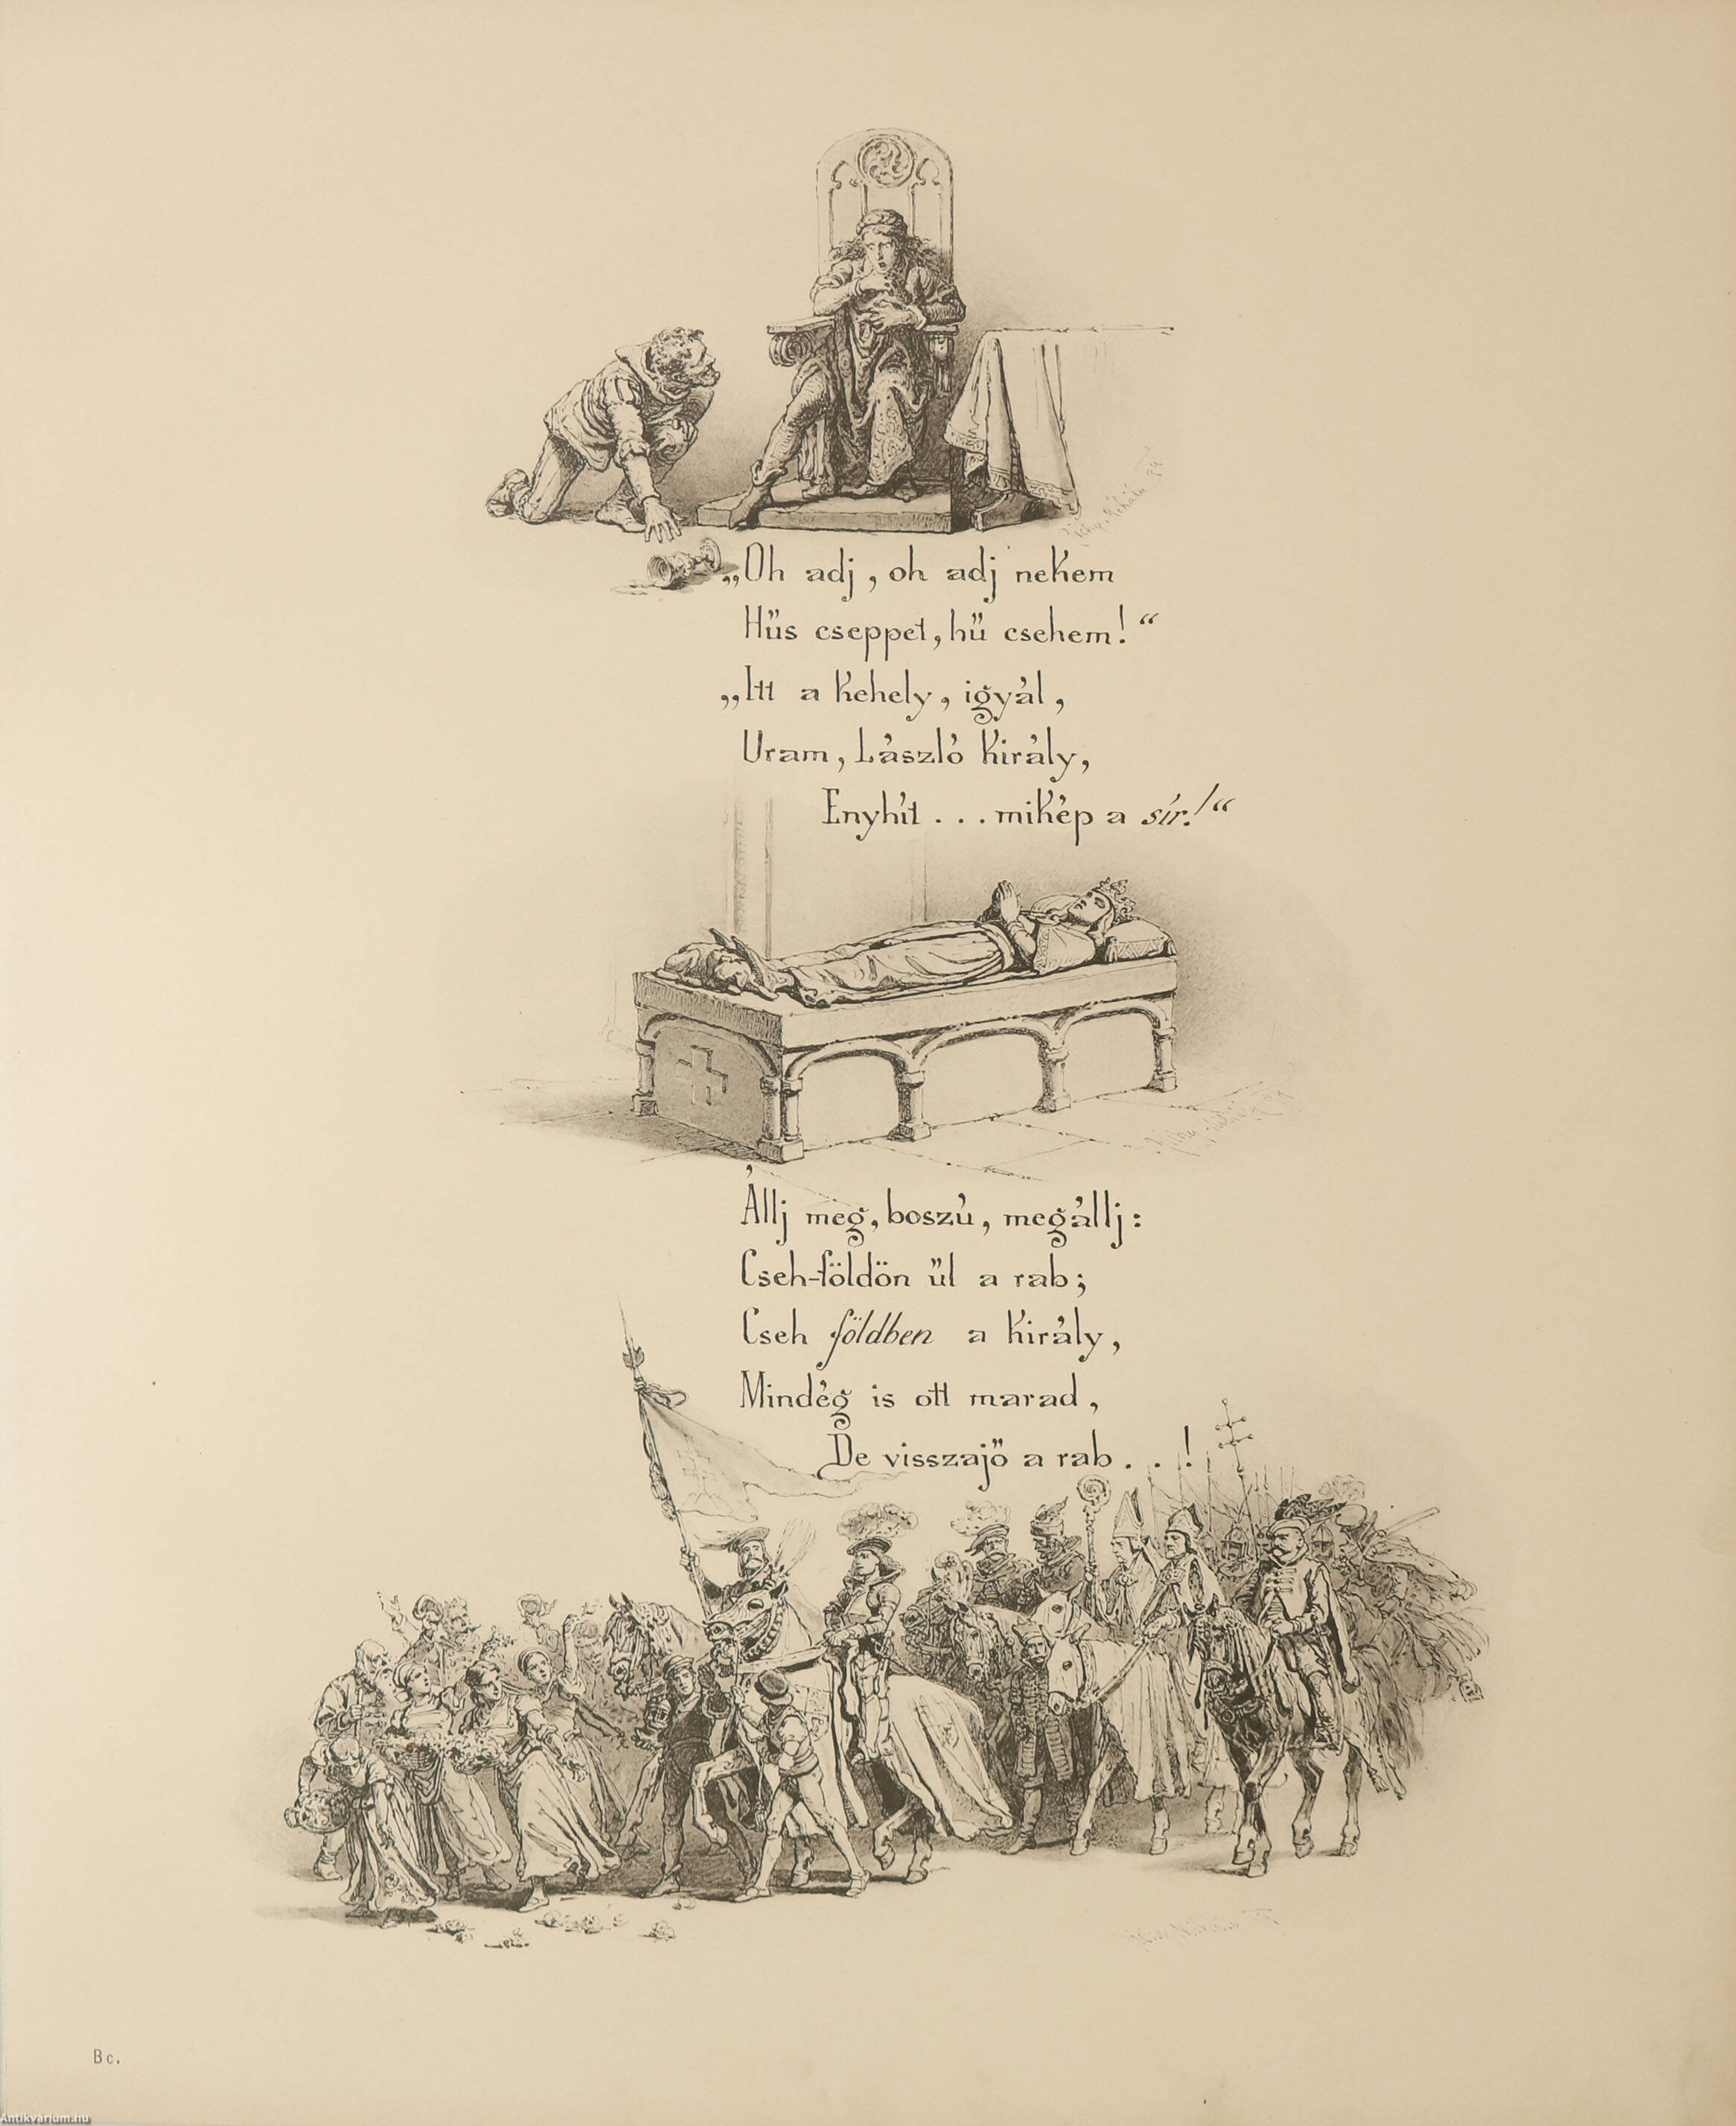 Zichy Mihály 94
„Oh adj, oh adj nekem
Hűs cseppet, hű csehem!“
„Itt a kehely, igyál,
Uram, László király,
Enyhít . . . mikép a sír!“
Állj meg, boszú, megállj:
Cseh-földön ül a rab;
Cseh földben a király,
Mindég is ott marad,
De visszajő a rab . . !
Bc.
Antikvárium.hu